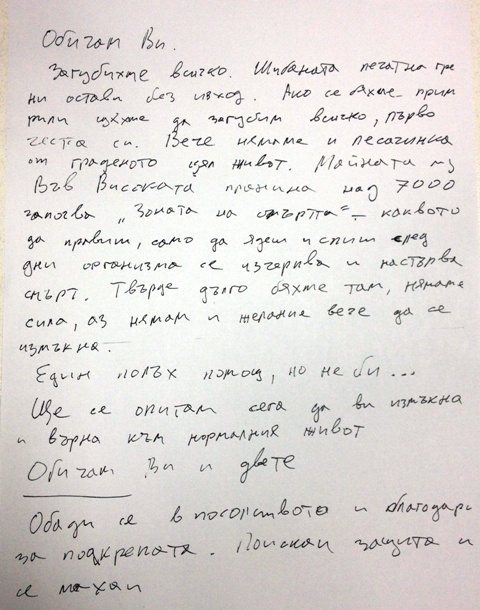 Обичам Ви.
Загубихме всичко. Шибаната печатна гре
ни остави без изход. Ако се бяхме прим
рили щяхме да загубим всичко, първо
честта си. Вече нямаме и песачинка
от граденото цял живот. Майната му
Във Високата планина над 7000
започва „Зоната на смъртта“ – каквото
да правиш, само да ядеш и спиш след
дни организма се изчерпва и настъпва
смърт. Твърде дълго бяхме там, нямаме
сила, аз нямам и желание вече да се
измъкна.
Един полъх помощ, но не би...
Ще се опитам сега да ви измъкна
и върна към нормалния живот
Обичам Ви и двете
Обади се в посолството и благодари
за подкрепата. Поискай защита и
се махай